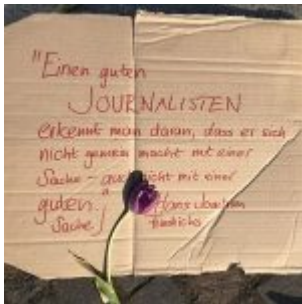 "Einen guten
JOURNALISTEN
erkennt man daran, dass er sich
nicht gemein macht mit einer
Sache - auch nicht mit einer
guten Hans Joachim
Sache." Friedrichs